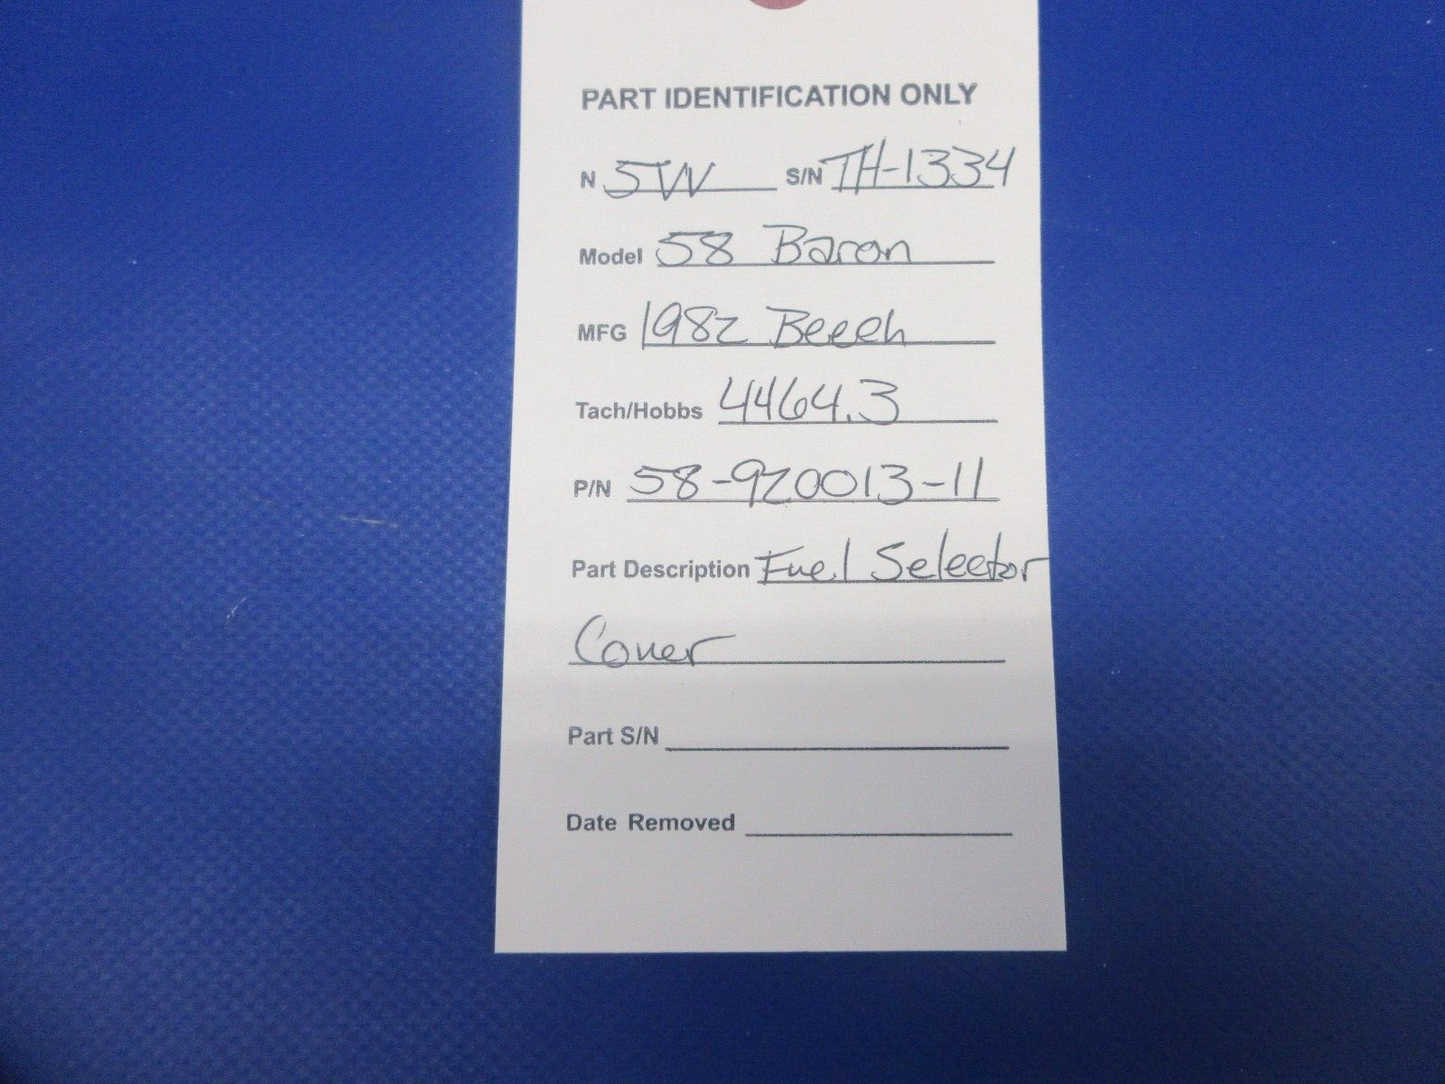 PART IDENTIFICATION ONLY
N 5VV S/N TH-1334
Model 58 Baron
MFG 1982 Beech
Tach/Hobbs 4464.3
P/N 58-920013-11
Part Description Fuel Selector
Cover
Part S/N
Date Removed